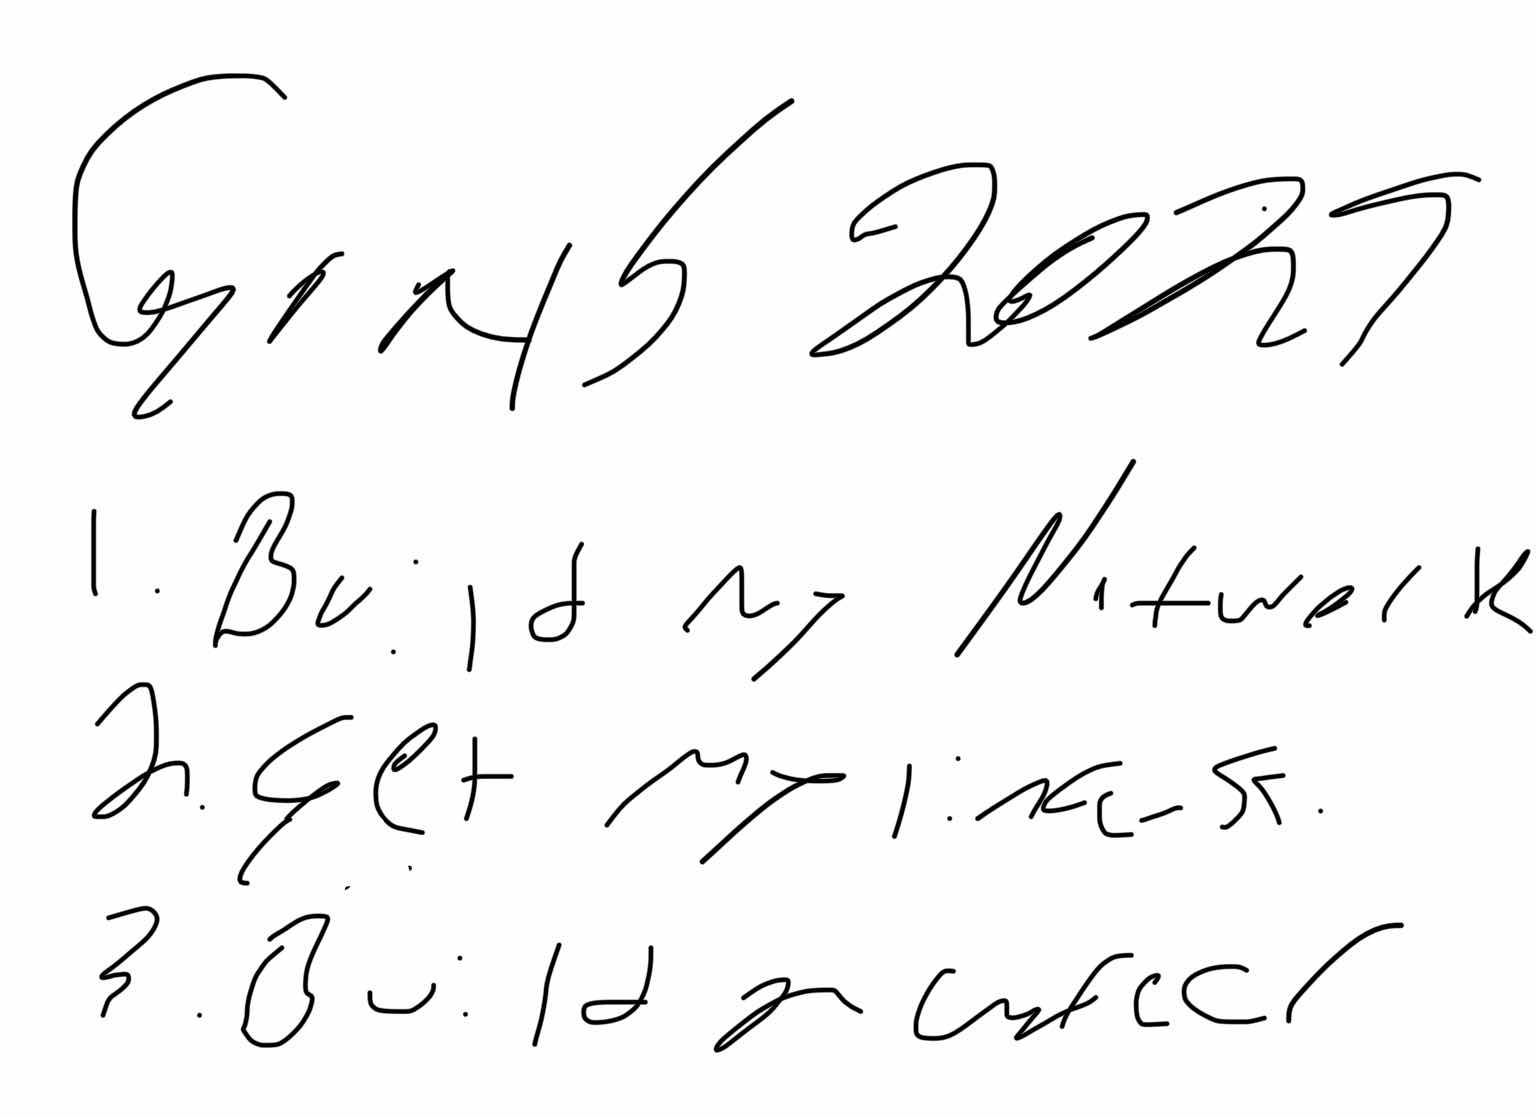 2027
1. Build my Network
2. Get my license.
3. Build a career